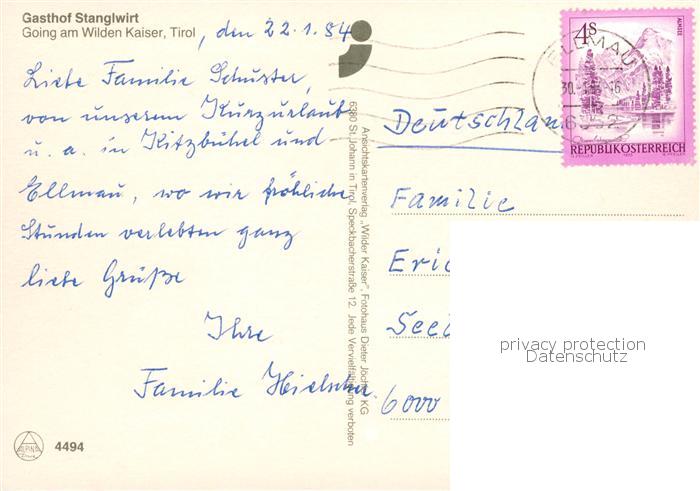 Gasthof Stanglwirt
Going am Wilden Kaiser, Tirol, den 22.1.84
Liebe Familie Schuster,
von unserem Kurzurlaub
u. a. in Kitzbühel und
Ellmau, wo wir fröhliche
Stunden verlebten ganz
liebe Grüße
Ihre
Familie
4494
Ansichtskartenverlag „Wilder Kaiser", Fotohaus Dieter Jöchler KG
6380 St. Johann in Tirol, Speckbacherstraße 12. Jede Vervielfältigung verboten
4S
ALMSEE
REPUBLIK ÖSTERREICH
ELLMAU
Deutschland
Familie
Eric
Seed
6000
privacy protection
Datenschutz